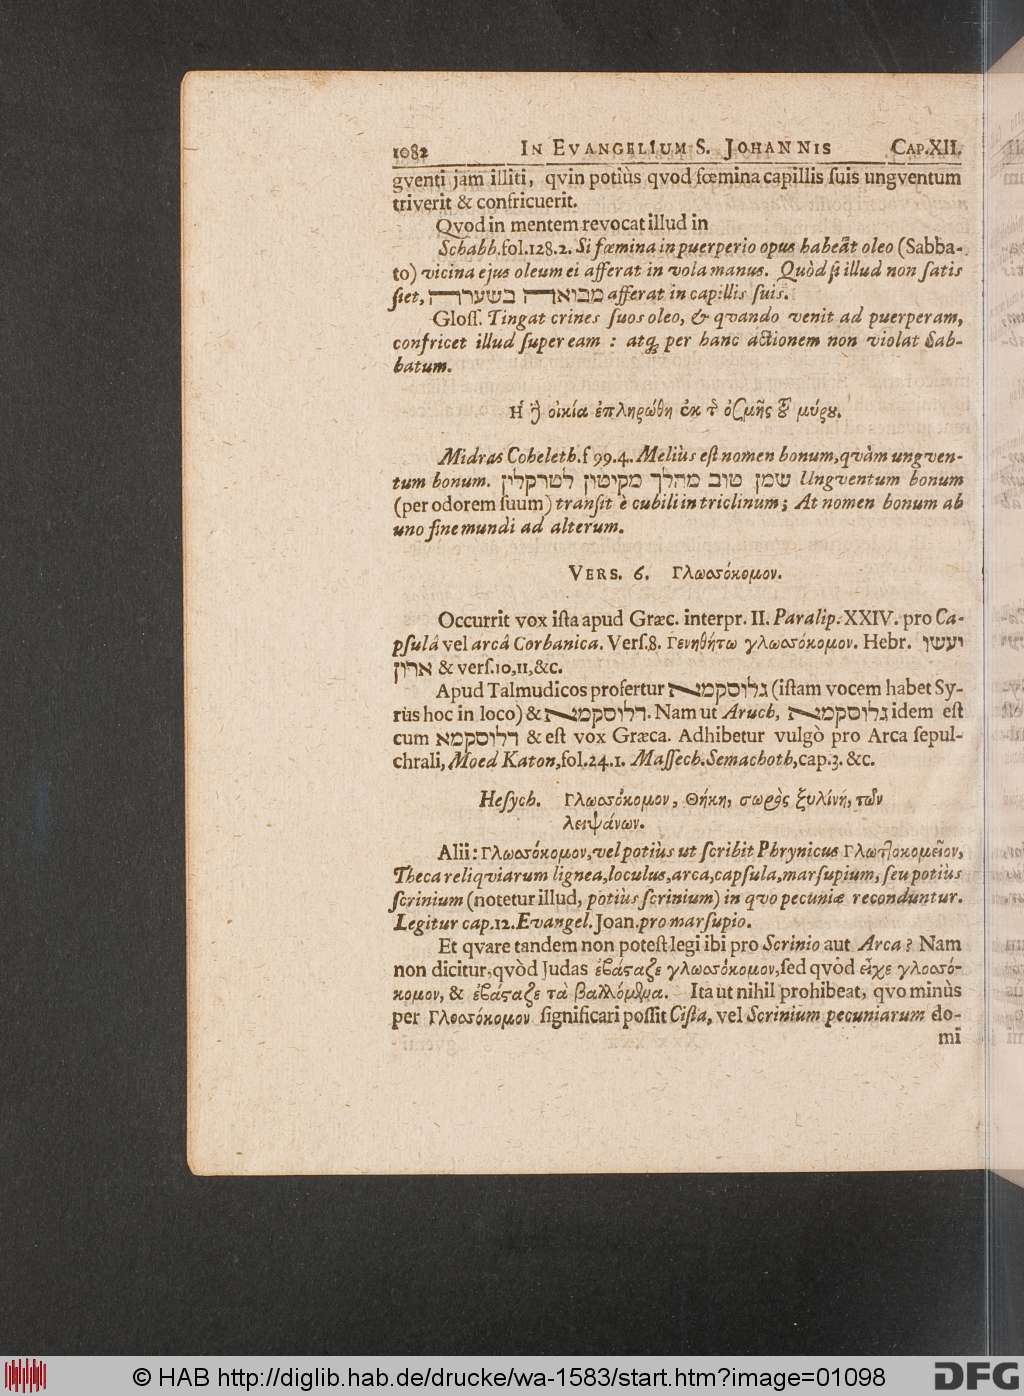 1082 IN EVANGELIUM S. JOHANNIS CAP.XII.
gventi jam illiti, qvin potiùs qvod fœmina capillis ſuis ungventum
triverit & confricuerit.
Qvod in mentem revocat illud in
Schabb.fol.128.2. Si fœmina in puerperio opus habeat oleo (Sabba-
to) vicina ejus oleum ei afferat in vola manus. Quòd ſi illud non ſatis
ſiet, מבואה בשערה afferat in capillis ſuis.
Gloſſ. Tingat crines ſuos oleo, & qvando venit ad puerperam,
confricet illud ſuper eam : atq; per hanc actionem non violat Sab-
batum.
Η ἢ οἰκία ἐπληρώθη ἐκ τ̃ ὀζμῆς ꙋ̃ μύρȣ.
Midras Coheleth.f 99.4. Meliùs eſt nomen bonum,qvàm ungven-
tum bonum. שמן טוב מהלך מקיטון לטרקלין Ungventum bonum
(per odorem ſuum) tranſit è cubili in triclinum; At nomen bonum ab
uno fine mundi ad alterum.
VERS. 6. Γλωσσόκομον.
Occurrit vox iſta apud Græc. interpr. II. Paralip. XXIV. pro Ca-
pſulâ vel arcâ Corbanica. Verſ.8. Γενηθήτω γλωσσόκομον. Hebr. ויעשו
ארון & verſ.10,11,&c.
Apud Talmudicos profertur גלוסקמא (iſtam vocem habet Sy-
rùs hoc in loco) & דלוסקמא. Nam ut Aruch, גלוסקמא idem eſt
cum דלוסקמא & eſt vox Græca. Adhibetur vulgò pro Arca ſepul-
chrali, Moed Katon,fol.24.1. Maſſech.Semachoth,cap.3. &c.
Heſych. Γλωσσόκομον, Θήκη, σωρὸς ξυλίνη, τῶν
λειψάνων.
Alii: Γλωσσόκομον,vel potiùs ut ſcribit Phrynicus Γλωττοκομεῖον,
Theca reliqviarum lignea,loculus,arca,capſula,marſupium, ſeu potiùs
ſcrinium (notetur illud, potiùs ſcrinium) in qvo pecuniæ reconduntur.
Legitur cap.12.Evangel.Joan.pro marſupio.
Et qvare tandem non poteſt legi ibi pro Scrinio aut Arca? Nam
non dicitur,qvòd Judas ἐβάςαζε γλωσσόκομον,ſed qvòd εἶχε γλοσσό-
κομον, & ἐβάςαζε τὰ βαλλόμενα. Ita ut nihil prohibeat, qvo minùs
per Γλοσσόκομον ſignificari poſſit Ciſta, vel Scrinium pecuniarum do-
mi
© HAB http://diglib.hab.de/drucke/wa-1583/start.htm?image=01098 DFG